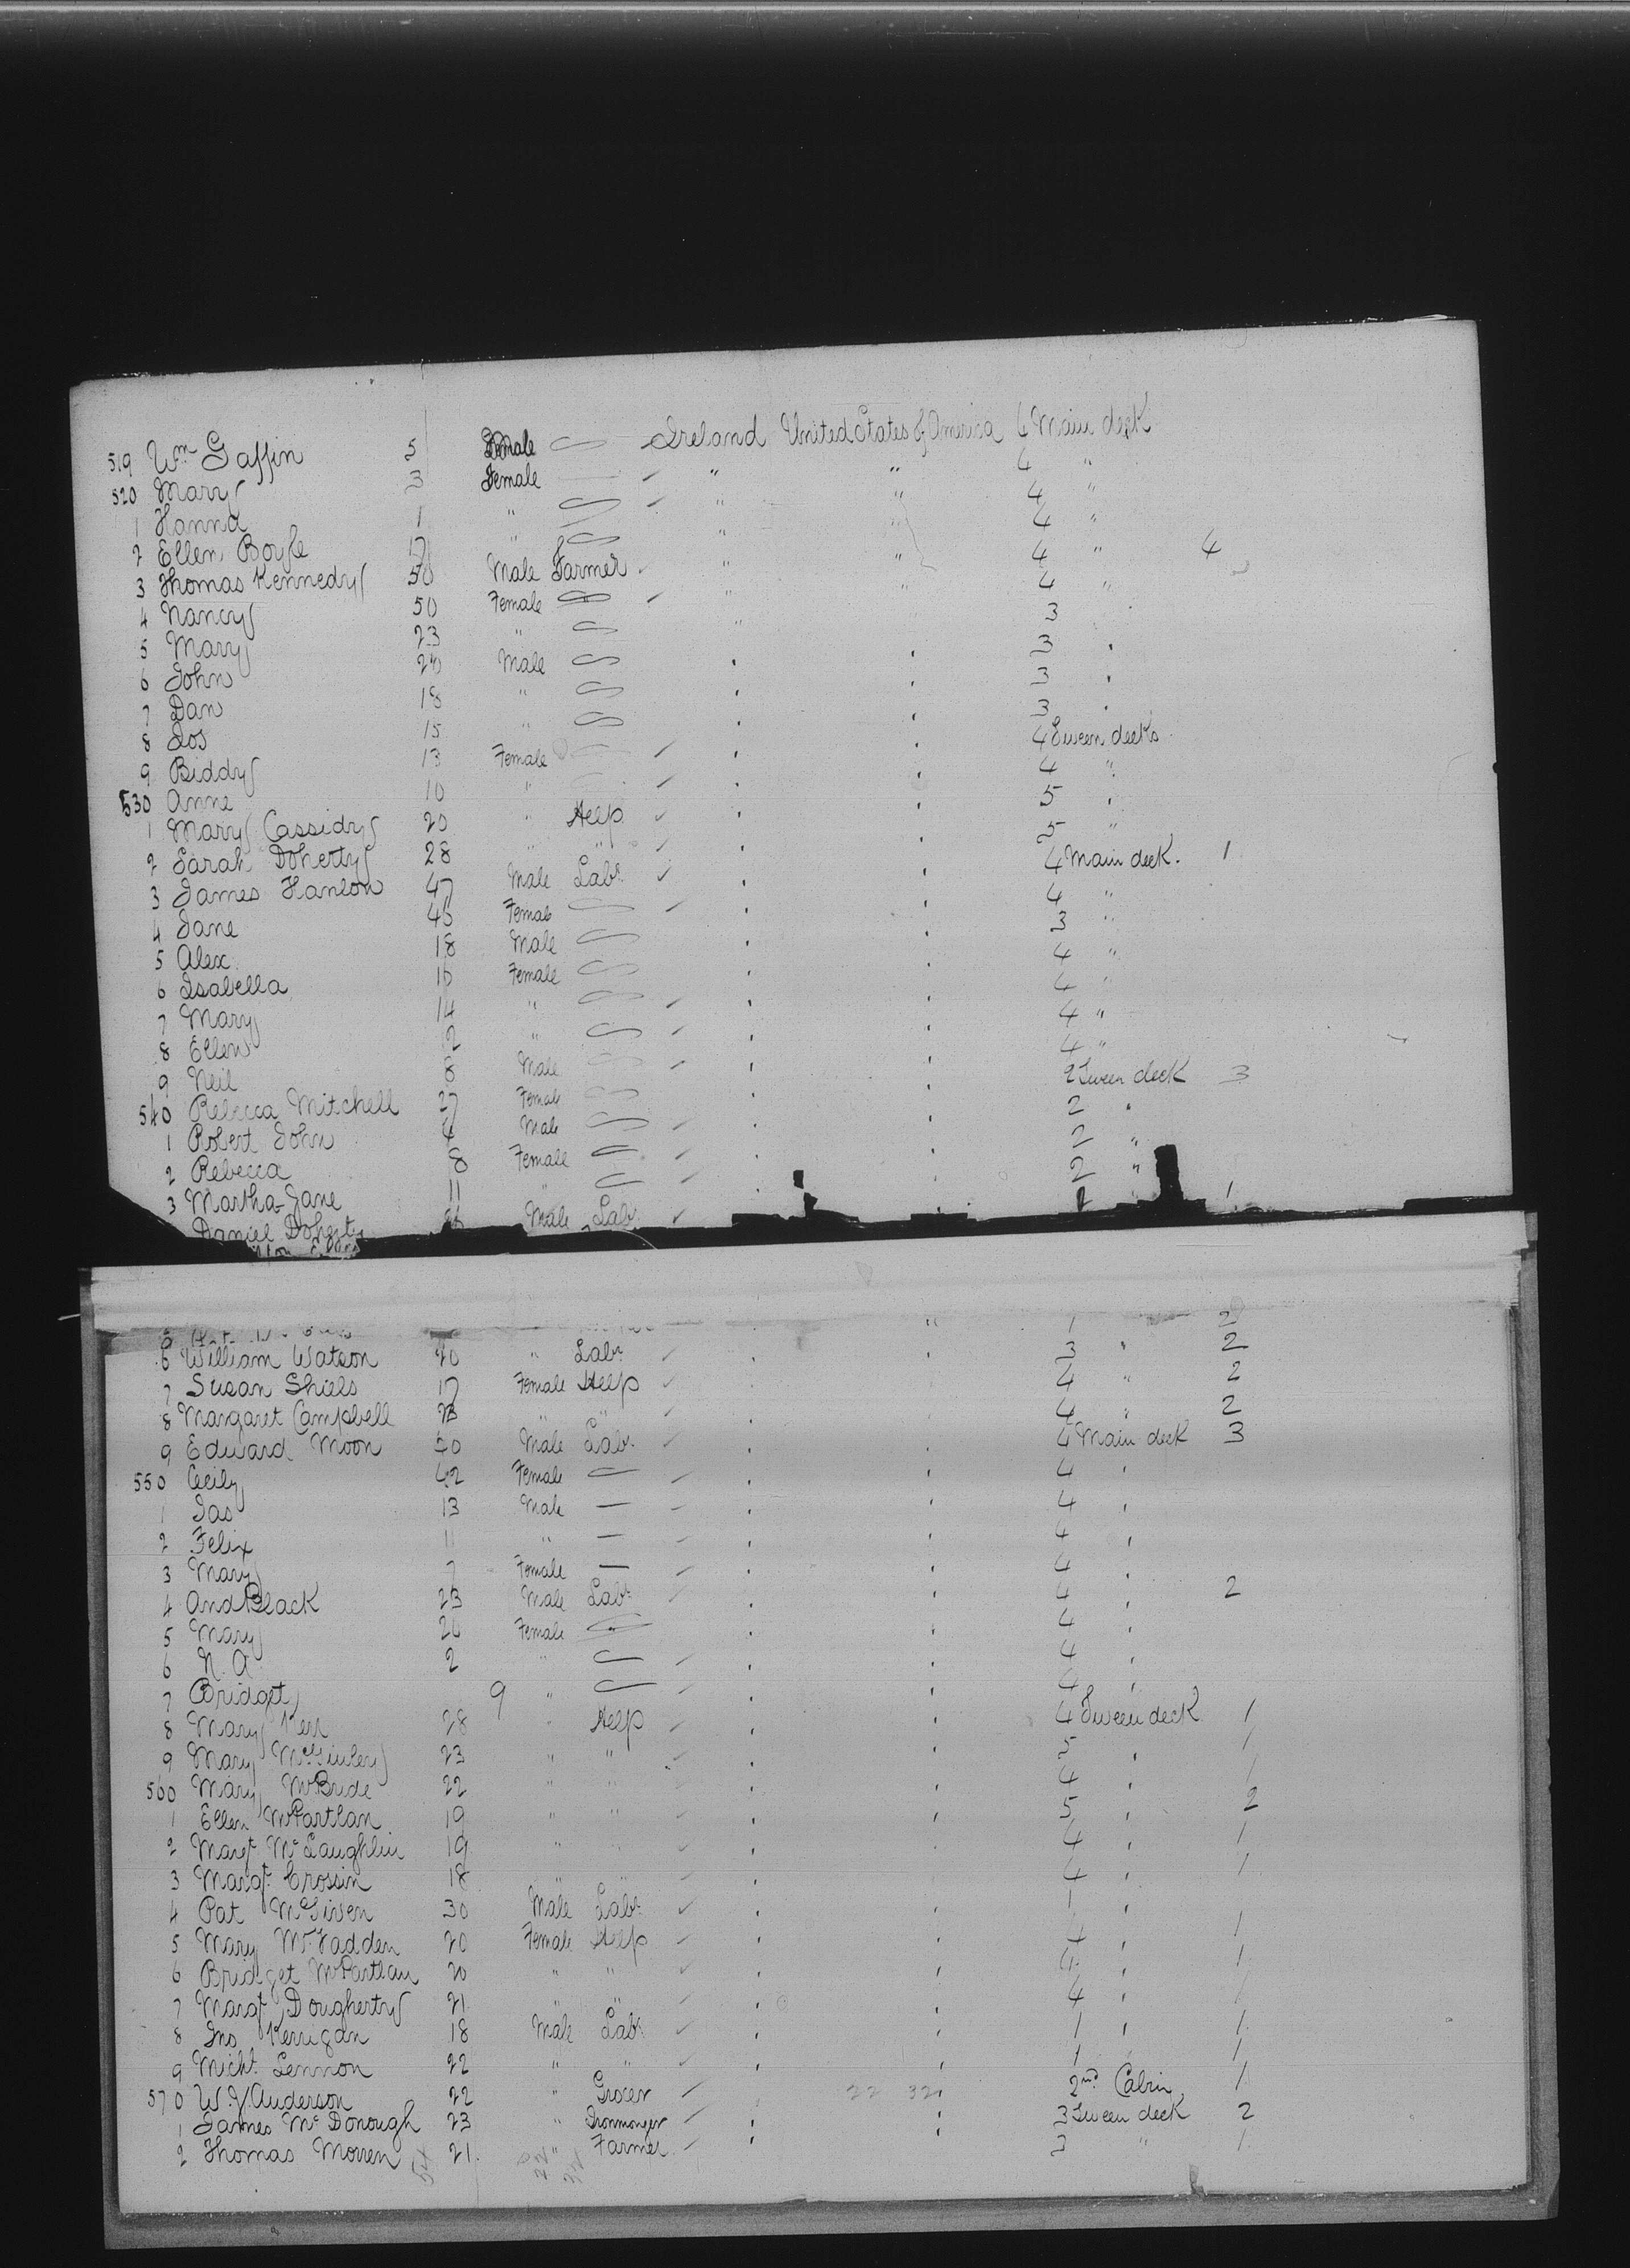 519 Wm Gaffin 5 Male Ireland United States of America 4 Main deck
520 Mary 3 Female " " 4 "
1 Hanna 1 " " " 4 "
2 Ellen Boyle 17 " " " 4 "
3 Thomas Kennedy 50 Male Farmer " " 4 " 4
4 Nancy 50 Female " " 4 "
5 Mary 23 " " 3
6 John 20 Male " " 3 "
7 Dan 18 " " " 3 "
8 Jos 15 " " " 3 "
9 Biddy 13 Female " " 4 Tween decks
530 Anne 10 " " " 4 "
1 Mary Cassidy 20 " Help " " 5 "
2 Sarah Doherty 28 " " " " 5 "
3 James Hanlon 47 Male Labr " " 4 Main deck. 1
4 Jane 45 Female " " 4 "
5 Alex 18 Male " " 3 "
6 Isabella 16 Female " " 4 "
7 Mary 14 " " " 4 "
8 Ellen " " " 4 "
9 Neil 8 Male " " 4 "
540 Rebecca Mitchell 27 Female " " 2 Tween deck 3
1 Robert John 4 Male " " 2 "
2 Rebecca Female " " 2 "
3 Martha Jane 11 " " " 2 "
Daniel Doherty Male Labr 1
" 1 2
6 William Watson 20 " Labr " " 3 " 2
7 Susan Shiels 17 Female Help " " 4 " 2
8 Margaret Campbell " " " " 4 " 2
9 Edward Moon 40 Male Labr " " 4 Main deck 3
550 Cecily 42 Female — " " 4 "
1 Jas 13 Male — " " 4 "
2 Felix 11 " — " " 4 "
3 Mary 7 Female — " " 4 "
4 And Black 23 Male Labr " " 4 " 2
5 Mary 20 Female " " 4 "
6 N. A. 2 " " " 4 "
7 Bridget 9 " " " 4 "
8 Mary Kerr 28 " Help " " 4 Tween deck 1
9 Mary McGinley 23 " " " " 5 " 1
560 Mary McBride 22 " " " " 4 " 1
1 Ellen McPartlan 19 " " " " 5 " 2
2 Margt McLaughlin 19 " " " " 4 " 1
3 Margt Crossin 18 " " " " 4 " 1
4 Pat McGirven 30 Male Labr " " 1 "
5 Mary McFadden 20 Female Help " " 4 " 1
6 Bridget McPartlan 20 " " " " 4 " 1
7 Margt Dougherty 21 " " " " 4 " 1
8 Jno Kerrigan 18 Male Labr " " 1 " 1
9 Michl Lennon 22 " " " " 1 " 1
570 W. J. Anderson 22 " Grocer 22 32 " 2nd Cabin 1
1 James McDonough 23 " Ironmonger " " 3 Tween deck 2
2 Thomas Morren 21 " Farmer " " 3 " 1